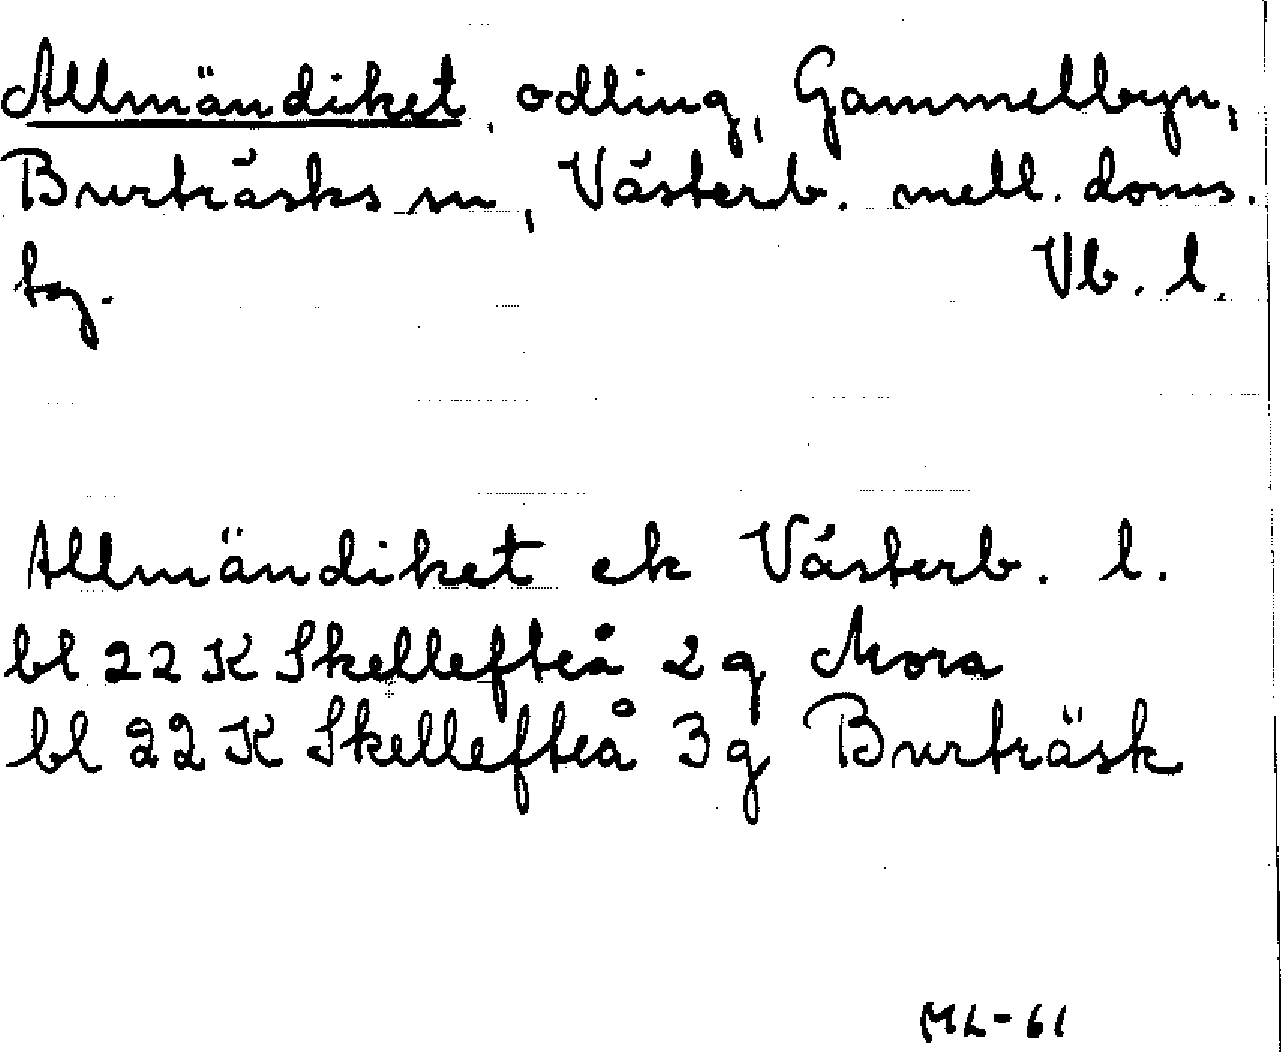 Allmändiket, odling, Gammelbyn,
Burträsks sn, Västerb. mell. doms.
tg. Vb. l.
Allmändiket ek Västerb. l.
bl 22 K Skellefteå 2 g Mora
bl 22 K Skellefteå 3 g Burträsk
ML-61